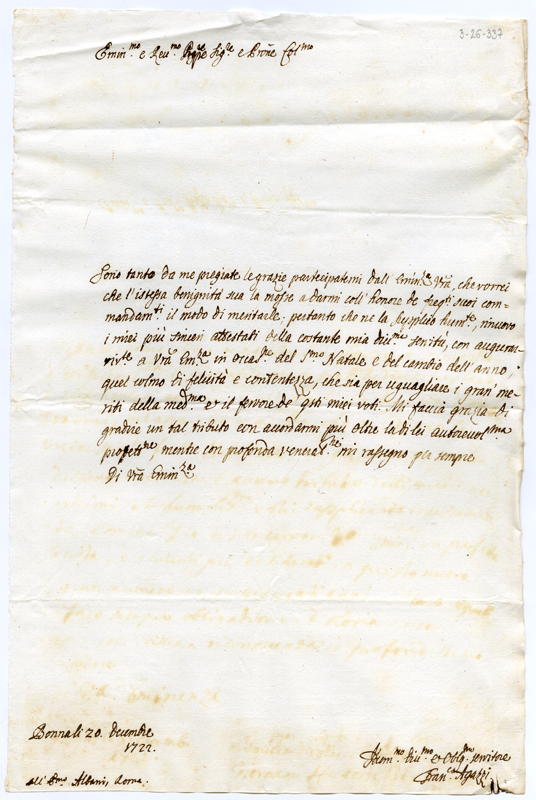 3-26-337
Emin.mo e Reu.mo Sig.re e Prône Col.mo
Sono tanto da me pregiate le grazie partecipatemi dall' Emin.za Vrâ, che vorrei
che l'istessa benignità sua la mosse a darmi coll' honore de suoi com-
mandam.ti il modo di meritarle; pertanto che ne la supplico hum.te, rinuovo
i miei più sinceri attestati della costante mia diu.ma seruitù, con augurar-
a Vrâ Em.za in occas.ne del S.mo Natale e del cambio dell' anno
quel colmo di felicità e contentezza, che sia per uguagliare i gran' me-
riti della med.ma et il feruore de q.sti miei voti. Mi faccia grazia di
gradire un tal tributo con accordarmi più oltre la di lei autoreuol.ma
protett.ne, mentre con profonda venerat.ne mi rassegno per sempre
Di Vrâ Emin.za
20. Decembre
1722.
Hum.mo Diu.mo et Obl.mo seruitore
Fran.co Agazzi
all' Em.mo Albani, Roma.